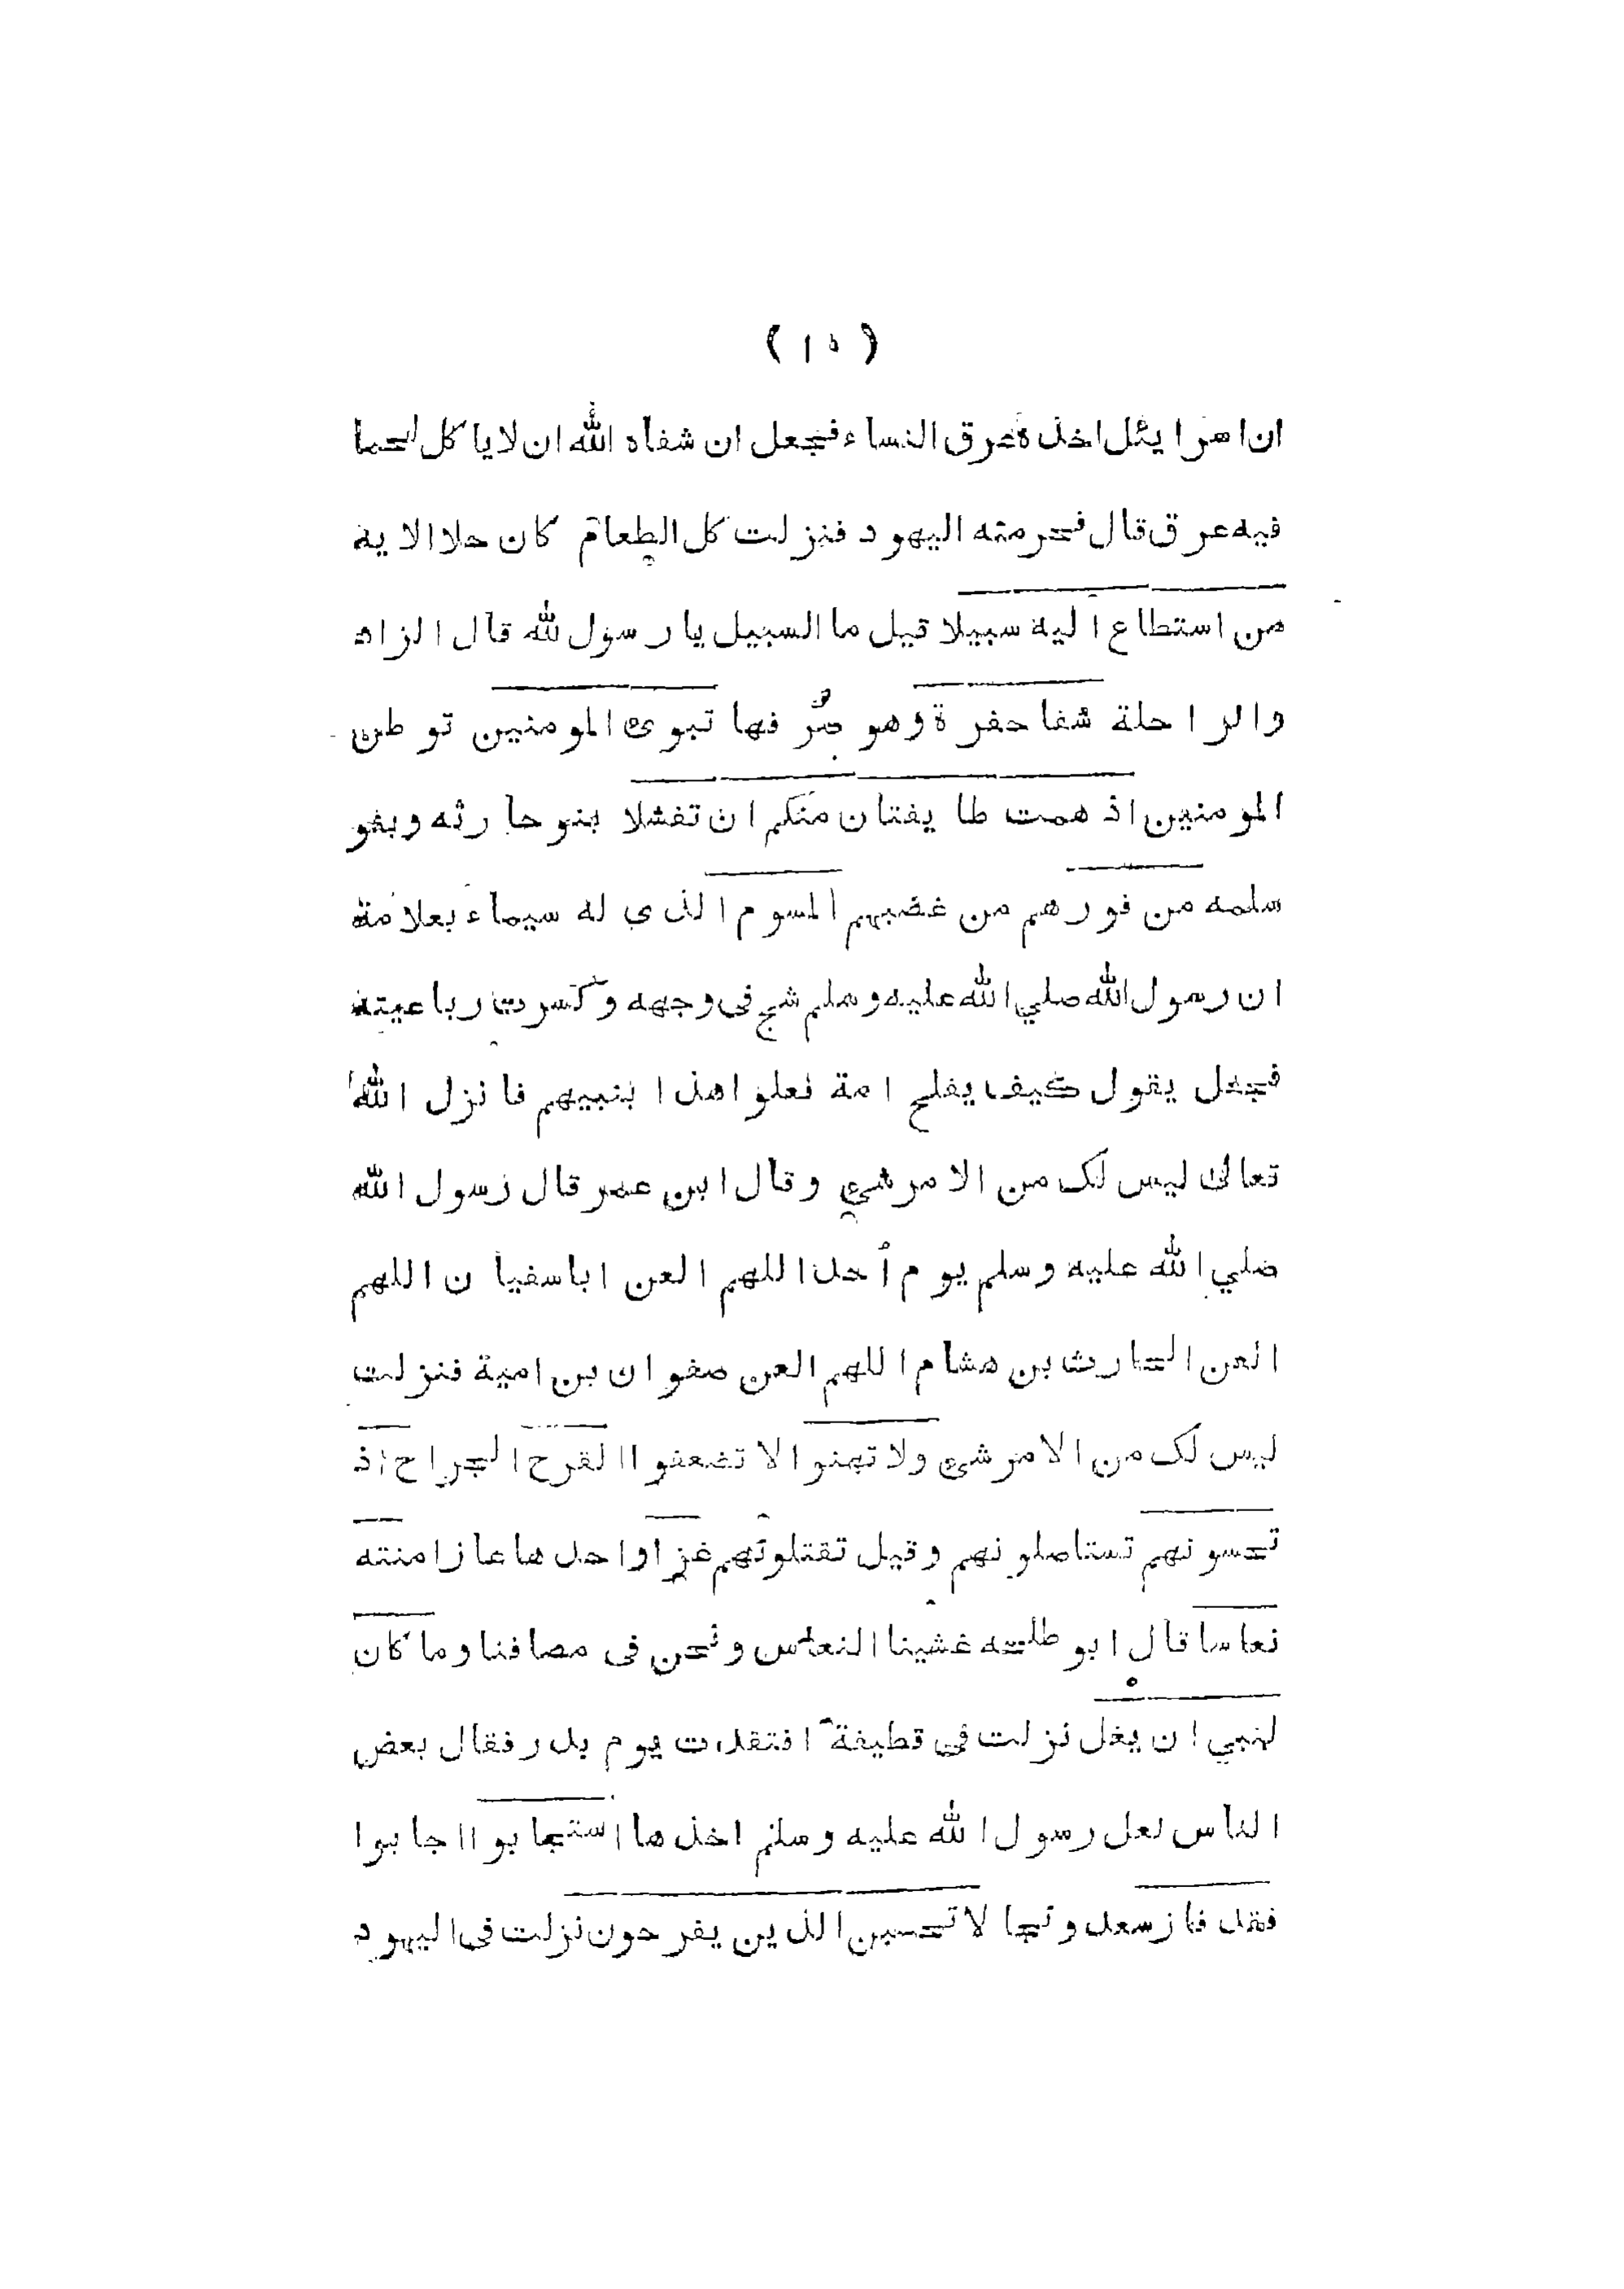 ( ١٥ )
ان اسرا يئل اخذه عرق النساء فجعل ان شفاه الله ان لا يا كل لحما
فيه عرق قال فحرمته اليهود فنزلت كل الطعام كان حلا الاية
من استطاع اليه سبيلا قيل ما السبيل يا رسول لله قال الزاد
والراحلة شفا حفرة وهو حرُّ فها تبوئ المومنين توطن
المومنين اذ همت طايفتان منكم ان تفشلا بنو حارثه وبنو
سلمه من فورهم من غضبهم المسوم الذي له سيماء بعلامة
ان رسول الله صلي الله عليه وسلم شج فى وجهه وكسرت رباعيته
فجعل يقول كيف يفلح امة فعلوا هذا بنبيهم فانزل الله
تعالى ليس لك من الامر شيء وقال ابن عمر قال رسول الله
صلي الله عليه وسلم يوم أحد اللهم العن اباسفيان اللهم
العن الحارث بن هشام اللهم العن صفوان بن امية فنزلت
ليس لك من الامر شيء ولا تهنوا لا تضعفوا القرح الجراح اذ
تحسونهم تستاصلونهم وقيل تقتلونهم غزا واحدها عاز امنته
نعاسا قال ابو طلحه غشينا النعاس ونحن فى مصافنا وما كان
لنبي ان يغل نزلت في قطيفة افتقدت يوم بدر فقال بعض
الناس لعل رسول الله عليه وسلم اخذها استجابوا اجابوا
فقد فاز سعد ونجا لا تحسبن الذين يفرحون نزلت فى اليهود